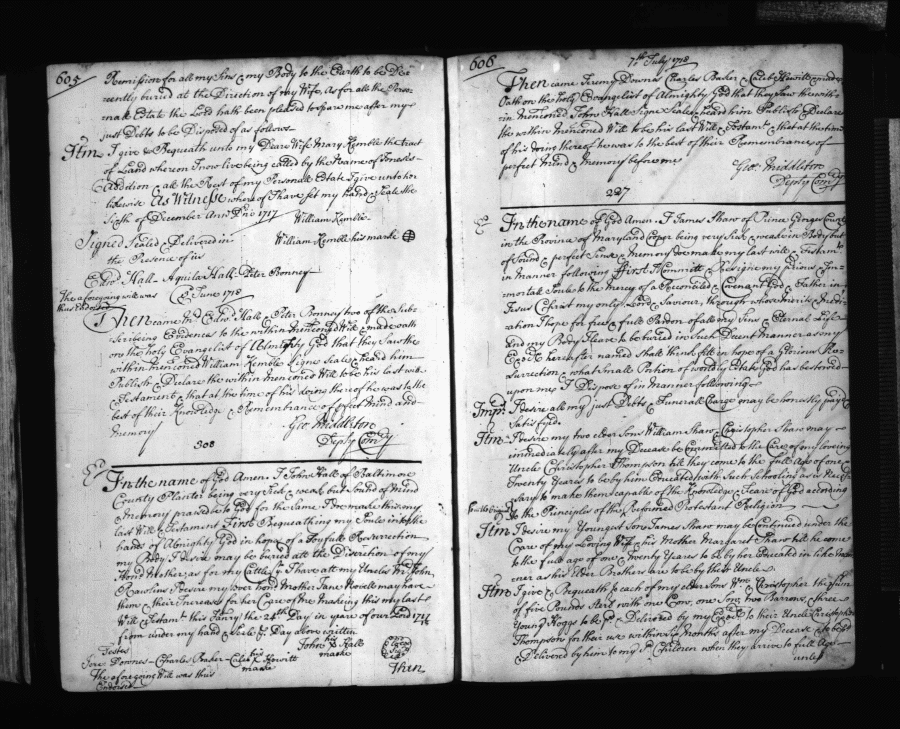 605
Remission for all my Sins & my Body to the Earth to be Dec
ently buried at the Direction of my Wife, As for all the Perso
nall Estate the Lord hath been pleased to spare me after my
just Debts to be Disposed of as follows
Itm I give & Bequeath unto my Deare Wife Mary Kemble the tract
of Land whereon I now live being called by the Name of Jones's
Addition & all the Rest of my Personall Estate I give unto her
likewise As Witness whereof I have set my hand & Seale the
Sixth of December Ann Dno 1717 William Kemble
Signed Sealed & Delivered in William Kemble his marke
the Presence of us
Edwd Hall Aquila Hall Peter Bonney
The aforegoing will was June 1718
thus Endorsed
Then came Edwd Hall & Peter Bonney two of the Subs
cribeing Evidences to the within mentioned Will & made oath
on the holy Evangelist of Almighty God that they Saw the
within mentioned William Kemble Signe Seale & heard him
Publish & Declare the within mentioned Will to be his last will
& Testament & that at the time of his doing thereof he was to the
best of their Knowledge & Remembrance of pfect Mind and
Memory
Geo: Middleton
Depty Comry
308
In the name of God Amen I John Hall of Baltimore
County Planter being very Sick & weak but Sound of Mind
& Memory praised be God for the Same Doe make this my
last Will & Testament First Bequeathing my Soule into the
hands of Almighty God in hope of a Joyfull Resurrection
my Body I desire may be buried att the Discretion of my
Hond Mother as for my Cattle I have att my Uncles Mr John
Rawlins I desire my ever hond Mother Jane Novell may have
them & their Increase for her Care of me making this my last
Will & Testamt this Janry the 24th Day in year of our Lord 171
from under my hand & Seale ye Day above written
Testes his
John Hall
marke
Jere Downes Charles Baker Caleb Hewitt
his
marke
The aforegoing Will was thus
Endorsed
Then
606
7th July 1718
Then came Jeremy Downs Charles Baker & Caleb Hewitt & made
Oath on the holy Evangelist of Almighty God that they Saw the with
in mentioned John Hall Signe Seale & heard him Publish & Declare
the within mentioned Will to be his last Will & Testamt & that at the time
of his doing thereof he was to the best of their Remembrance of
perfect Mind & Memory before me
Geo: Middleton
Depty Comry
297
In the name of God Amen. I James Shaw of Prince Georges County
in the Province of Maryland being very Sick & weake in Body but
of Sound & perfect Sense & Memory doe make my last will & Testamt
in manner following first I Committ & Resigne my prious Im
mortall Soule to the Mercy of a Reconciled Covenant God & Father in
Jesus Christ my only Lord & Saviour, through whose merits & Medi
ation I hope for free & full Pardon of all my Sins & Eternal Life
And my Body I leave to be buried in Such Decent Manner as my
hereafter named Shall think fitt in hope of a Glorious Re
surrection & what Small Portion of worldly Estate God has bestowed
upon me I Dispose of in Manner following
Imps I desire all my just Debts & Funerall Charge may be honestly payd &
Satisfyed.
Itm I desire my two elder Sons William Shaw & Christopher Shaw may
immediately after my Decease be Committed to the Care of my loveing
Uncle Christopher Thompson till they come to the full Age of one &
Twenty Years to be by him Educated with Such Schooling as is
sary to make them capable of the Knowledge & Fear of God according
to the Principles of the Reformed Protestant Religion
Itm I desire my Youngest Son James Shaw may be Continued under the
Care of my Loving Wife his Mother Margaret Shaw till he come
to the full age of one & Twenty Years to be by her Educated in like man
ner as his Elder Brothers are to be by their Uncle
Itm I give & Bequeath to each of my elder Sons Wm & Christopher the Sum
of five Pounds Sterl with one Cow, one Sow, two Barrows, three
Young Hoggs to be Delivered by my to their Uncle Christopher
Thompson for their use within Six Months after my Decease & to be
Delivered by him to my sd Children when they arrive to full Age
unless